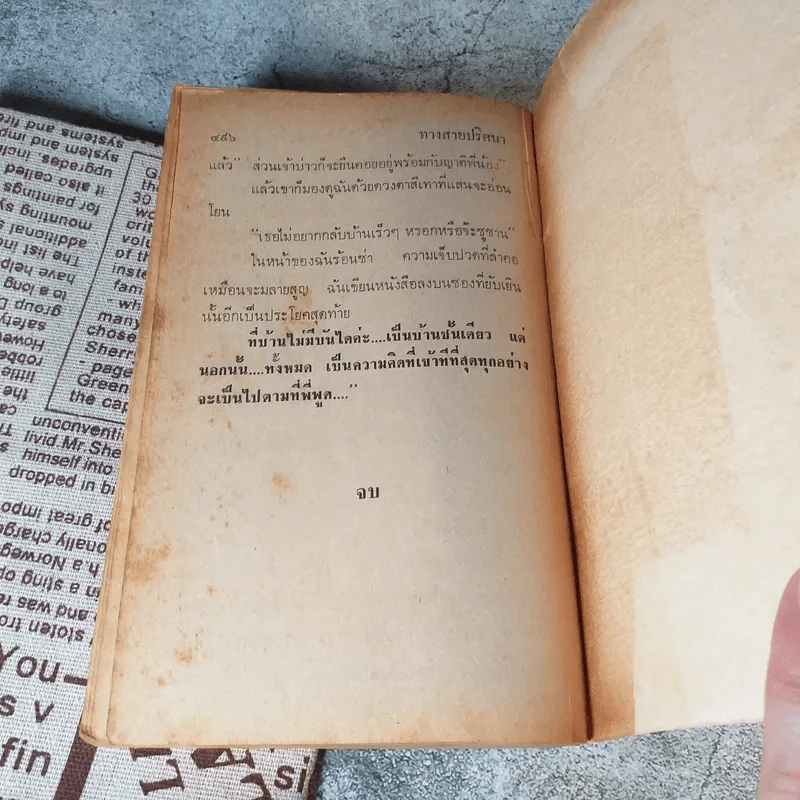 ๔๕๖ ทางสายปริศนา
แล้ว" ส่วนเจ้าบ่าวก็จะยืนคอยอยู่พร้อมกับญาติพี่น้อง"
แล้วเขาก็มองดูฉันด้วยดวงตาสีเทาที่แสนจะอ่อน
โยน
"เธอไม่อยากกลับบ้านเร็วๆ หรอกหรือจ๊ะซูซาน"
ใบหน้าของฉันร้อนซ่า ความเจ็บปวดที่ลำคอ
เหมือนจะมลายสูญ ฉันเขียนหนังสือลงบนซองที่ยับเยิน
นั้นอีกเป็นประโยคสุดท้าย
ที่บ้านไม่มีบันไดค่ะ....เป็นบ้านชั้นเดียว แต่
นอกนั้น....ทั้งหมด เป็นความคิดที่เข้าทีที่สุดทุกอย่าง
จะเป็นไปตามที่พี่พูด...."
จบ
systems and fire
system and imp
upgrades. inclu
it also called
for paintings
mounting sy
additional
The list in
have help
to a long
group D
safety
Howe
robbe
little
the
30
wor
criti
volu
of th
inste
famil
- whi
many
chose
Sherri
- page
Green
the cap
unconventi
livid Mr.She
himself into
dropped in bu
of great impo
onally charge
h.a Norweg
in a sting op
and was re
stolen tro
You
s v
fin
si